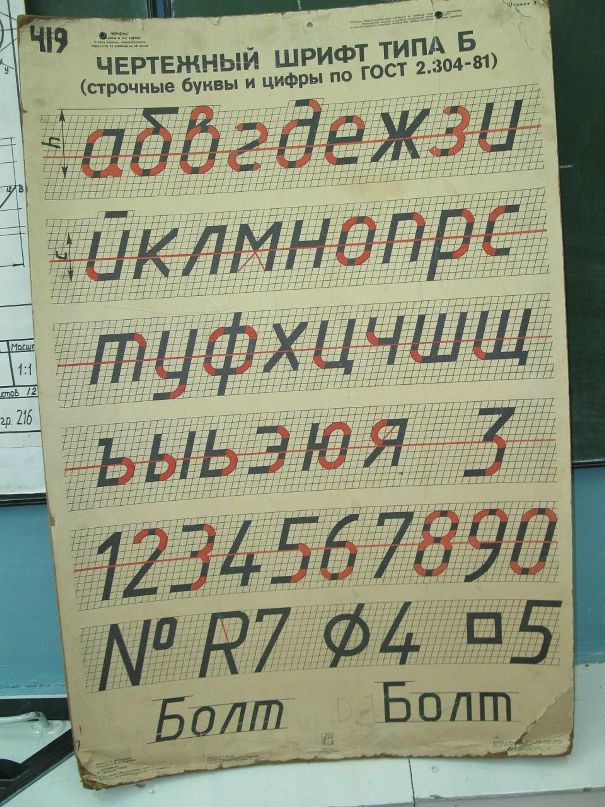 419
ЧЕРТЕЖНЫЙ ШРИФТ ТИПА Б
(строчные буквы и цифры по ГОСТ 2.304-81)
h
абвгдежзи
c
йклмнопрс
туфхцчшщ
Масшт
1:1
ъыьэюя 3
гр. 216
1234567890
№ R7 ⌀4 □5
Болт Болт